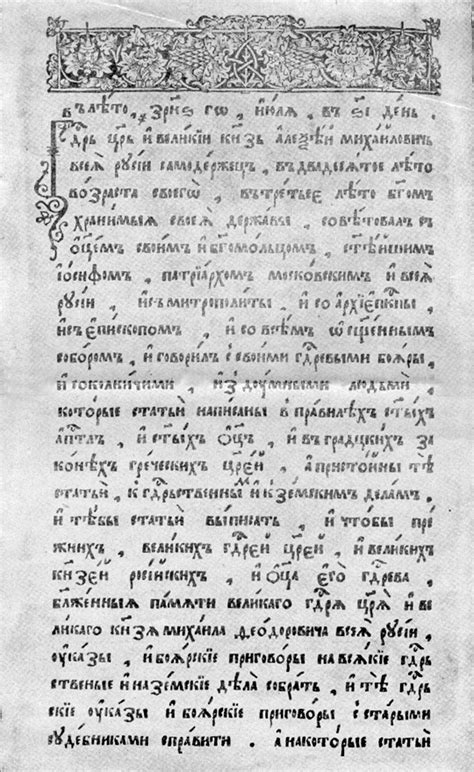 в̾ лѣто, ҂зрн҃ѕ го, і҆ю́лѧ, въ ѕ҃і день.
Гдⷭ҇рь цр҃ь и҆ вели́кїи кн҃зь алеѯѣ́й миха́йловичь
всеѧ̀ рꙋсі́и самоде́ржецъ, въдвадесѧ́тое лѣ́то
во́зраста своегѡ̀, втре́тьеє лѣ́то бг҃омъ
храни́мыѧ своеѧ̀ держа́вы, совѣ́товалъ съ
ѻ҆ц҃е́мъ свои́мъ и҆ бг҃омо́льцомъ, ст҃ѣ́йшимъ
і҆ѡ́сифомъ, патрїа́рхомъ моско́вскимъ и҆ всеѧ̀
рꙋсі́и, и҆ съ митрополи́ты, и҆ со а҆рхїепⷭ҇кпы,
и҆ съ є҆пи́скопомъ, и҆ со всѣ́мъ ѡ҆сщ҃е́ннымъ
собо́ромъ, и҆ говори́лъ с свои́ми гдⷭ҇ревыми боѧ́ры,
и҆ соко́лничими, и҆ з дꙋ́мными людьмѝ,
кото́рые статьѝ напи́саны в пра́вилѣхъ ст҃ы́хъ
а҆пⷭ҇тлъ, и҆ ст҃ы́хъ ѻ҆ц҃ъ, и҆ въ гра́дцкихъ за
ко́нѣхъ гре́ческихъ цр҃е́й, а҆ присто́йны тѣ̀
статьѝ, к гдⷭ҇рьственнымъ и҆ к зе́мскимъ дѣла́мъ.
и҆ тѣ́бы статьѝ вы́писать, и҆ что́бы пре
жни́хъ, вели́кихъ гдⷭ҇ре́й цр҃е́й, и҆ вели́кихъ
кн҃зе́й росі́йскихъ, и҆ ѻ҆ц҃а̀ є҆гѡ̀ гдⷭ҇рева,
бл҃же́нныѧ па́мѧти вели́каго гдⷭ҇рѧ цр҃ѧ̀ и҆ ве
ли́каго кн҃зѧ миха́ила ѳео́доровича всеѧ̀ рꙋсі́и,
ᲂу҆ка́зы, и҆ боѧ́рскіе пригово́ры на всѧ́кіе гдⷭ҇рь
ственые и҆ на зе́мскіе дѣла̀ собра́ть, и҆ тѣ̀ гдⷭ҇рь
скіе ᲂу҆ка́зы и҆ боѧ́рскіе пригово́ры с ста́рыми
сꙋде́бниками спра́вити. а҆ на кото́рые статьѝ